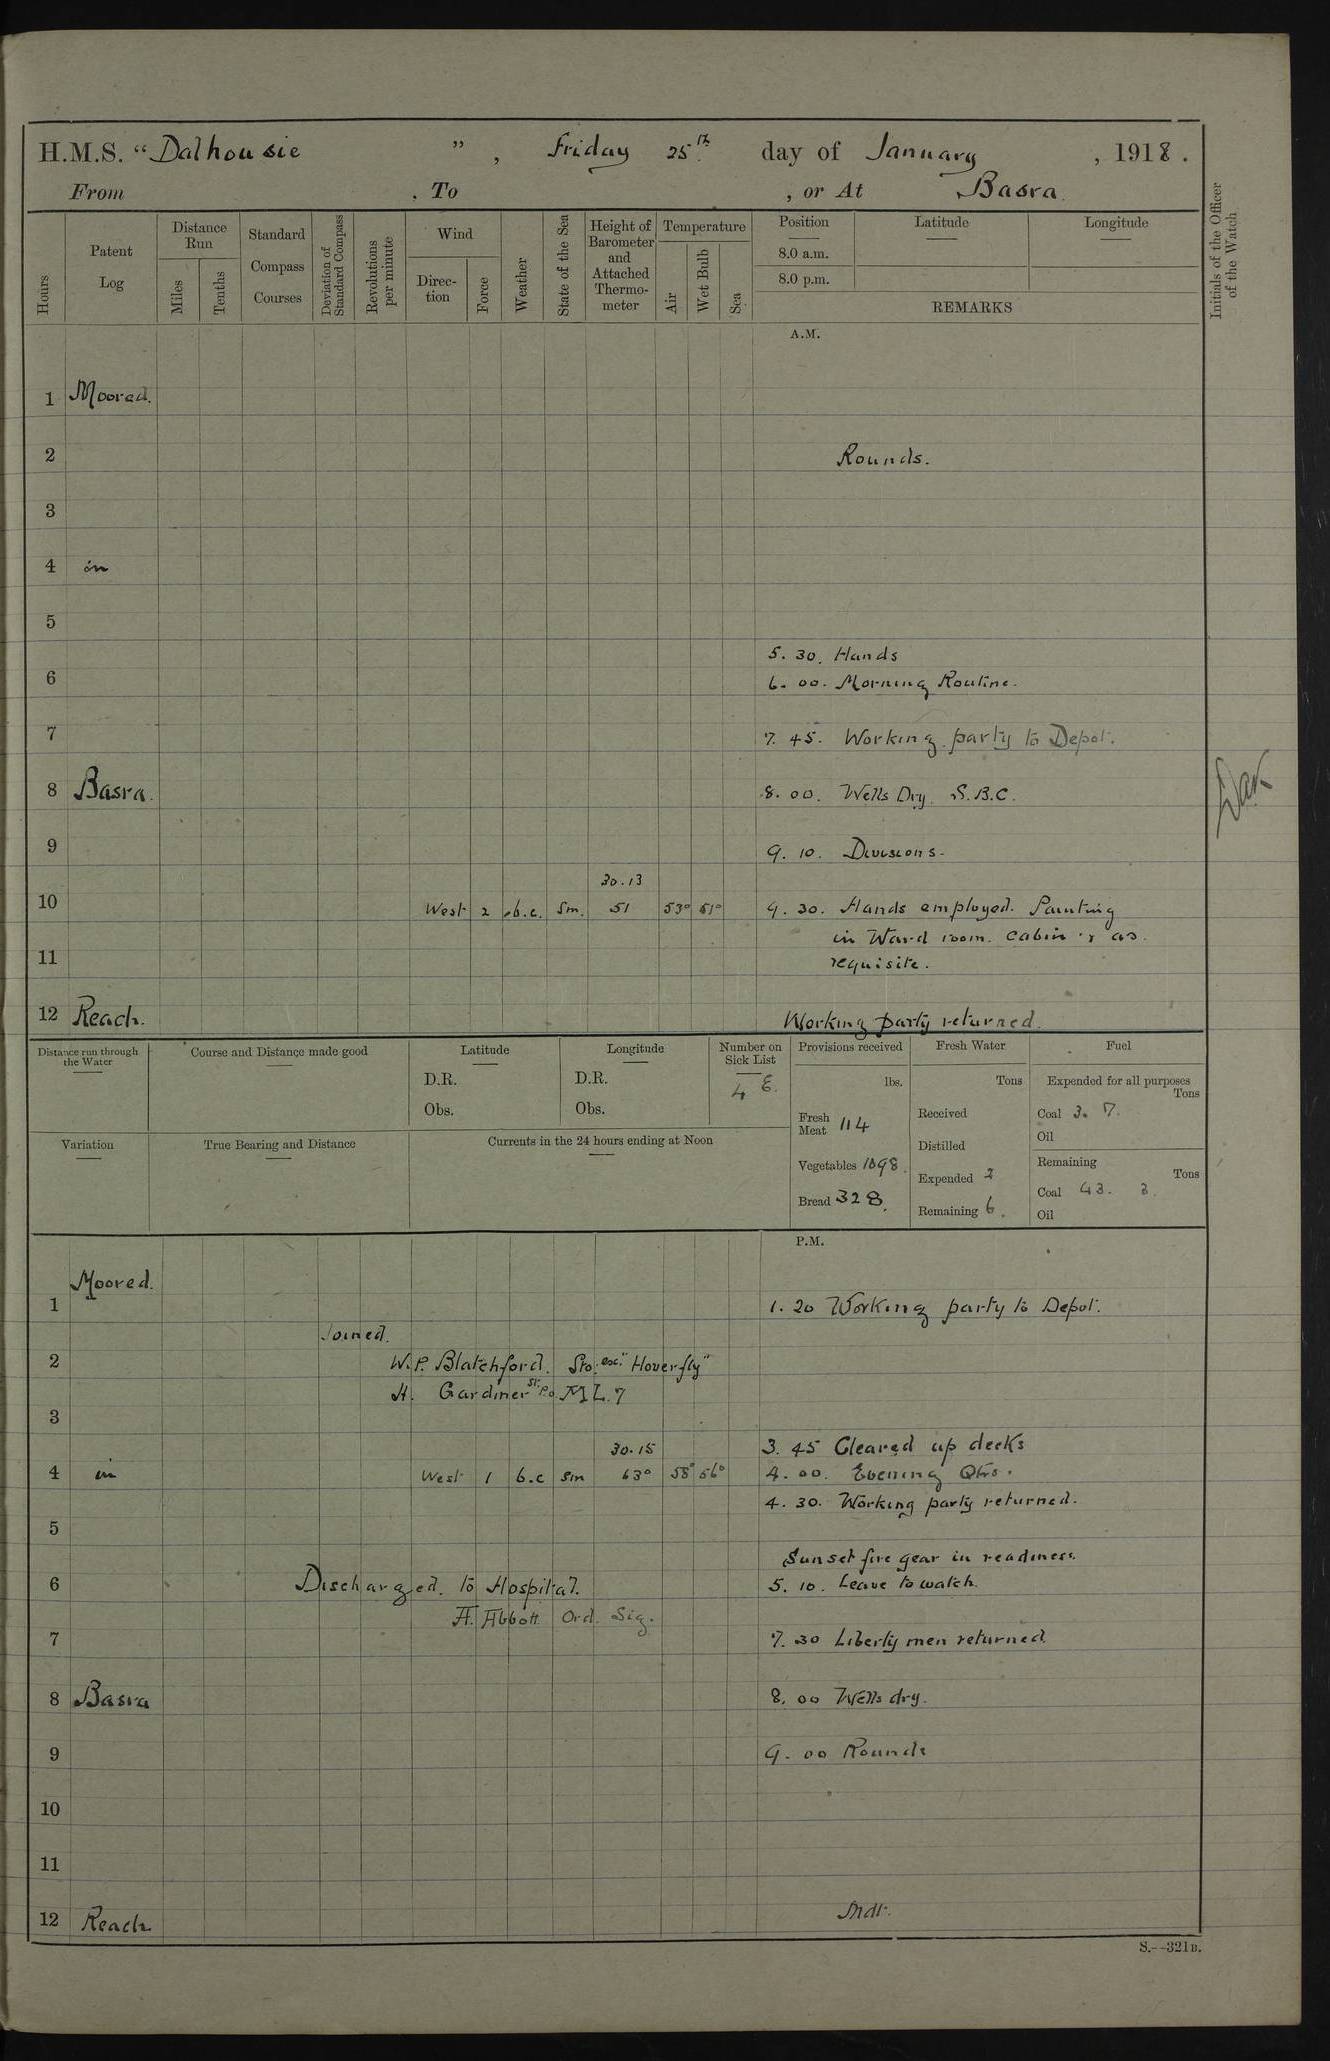 H.M.S. “Dalhousie ”, Friday 25th day of January, 1918.
From , To , or At Basra.
Hours
Patent Log
Distance Run
Miles
Tenths
Standard Compass Courses
Deviation of Standard Compass
Revolutions per minute
Wind
Direction
Force
Weather
State of the Sea
Height of Barometer and Attached Thermometer
Temperature
Air
Wet Bulb
Sea
Position
8.0 a.m.
8.0 p.m.
Latitude
Longitude
REMARKS
Initials of the Officer of the Watch
A.M.
1 Moored.
2 Rounds.
3
4 in
5
5. 30. Hands
6
6. 00. Morning Routine.
7 7. 45. Working party to Depot.
8 Basra. 8. 00. Wells Dry. S.B.C.
9 9. 10. Divisions.
30.13
10 West 2 b.c. Sm. 51 53° 51° 9. 30. Hands employed. Painting
in Ward room. Cabin & as
11 requisite.
12 Reach. Working party returned.
Distance run through the Water
Course and Distance made good
Latitude
D.R.
Obs.
Longitude
D.R.
Obs.
Number on Sick List
4 E.
Provisions received
lbs.
Fresh Meat 114
Vegetables 1098.
Bread 328.
Fresh Water
Tons
Received
Distilled
Expended 2
Remaining 6.
Fuel
Expended for all purposes
Tons
Coal 3. 7.
Oil
Remaining
Tons
Coal 43. 3.
Oil
Variation
True Bearing and Distance
Currents in the 24 hours ending at Noon
P.M.
Moored.
1 1. 20 Working party to Depot.
Joined.
2 W.P. Blatchford. Sto. ex. "Hoverfly"
H. Gardiner St. P.O. ML. 7
3
30.15 3. 45 Cleared up decks
4 in West 1 b.c sm 63° 58° 56° 4. 00. Evening Qtrs.
4. 30. Working party returned.
5
Sunset fire gear in readiness.
6 Discharged. to Hospital. 5. 10. Leave to watch.
A. Abbott Ord. Sig.
7 7. 30 Liberty men returned.
8 Basra 8. 00 Wells dry.
9 9. 00 Rounds
10
11
12 Reach Mdt.
S.--321B.